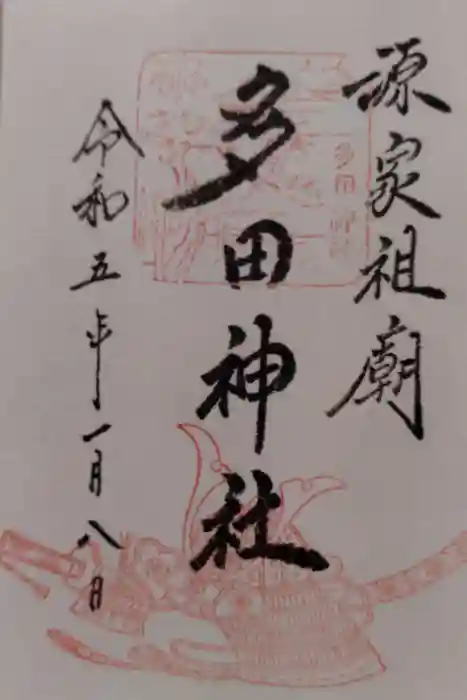 源家祖廟
多田神社
令和五年一月八日